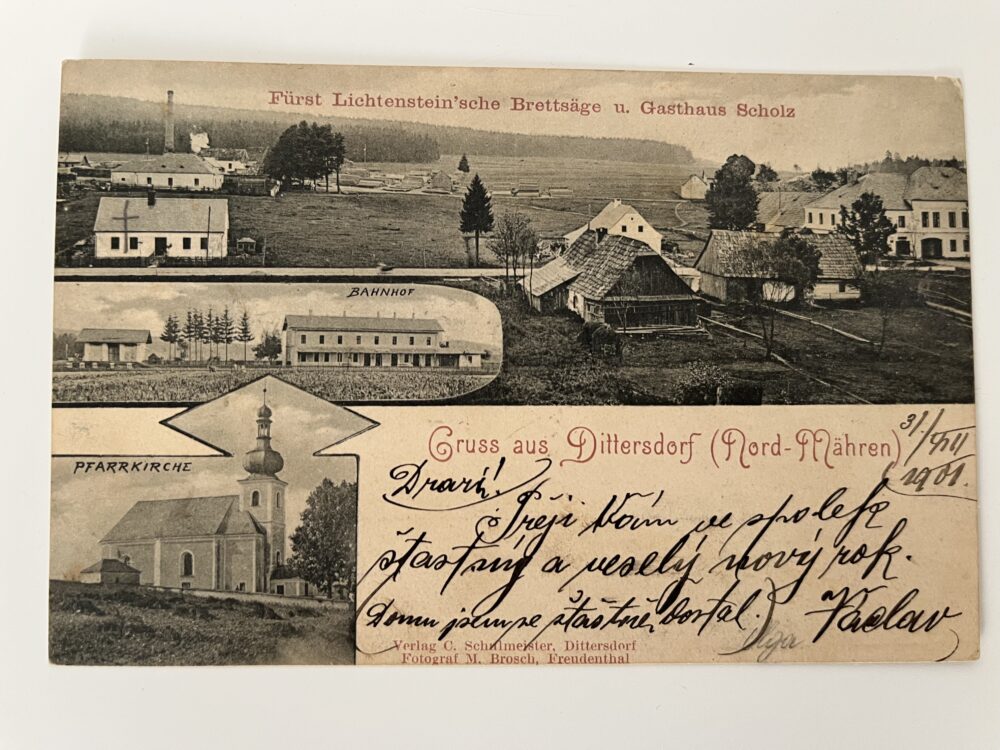 Fürst Lichtenstein'sche Brettsäge u. Gasthaus Scholz
BAHNHOF
PFARRKIRCHE
Gruss aus Dittersdorf (Nord-Mähren)
31./XII
1901.
Drazí!
Přeji Vám ve spolek
šťastný a veselý nový rok.
Domu jsem se šťastně dostal.
Václav
Olga
Verlag C. Schulmeister, Dittersdorf
Fotograf M. Brosch, Freudenthal